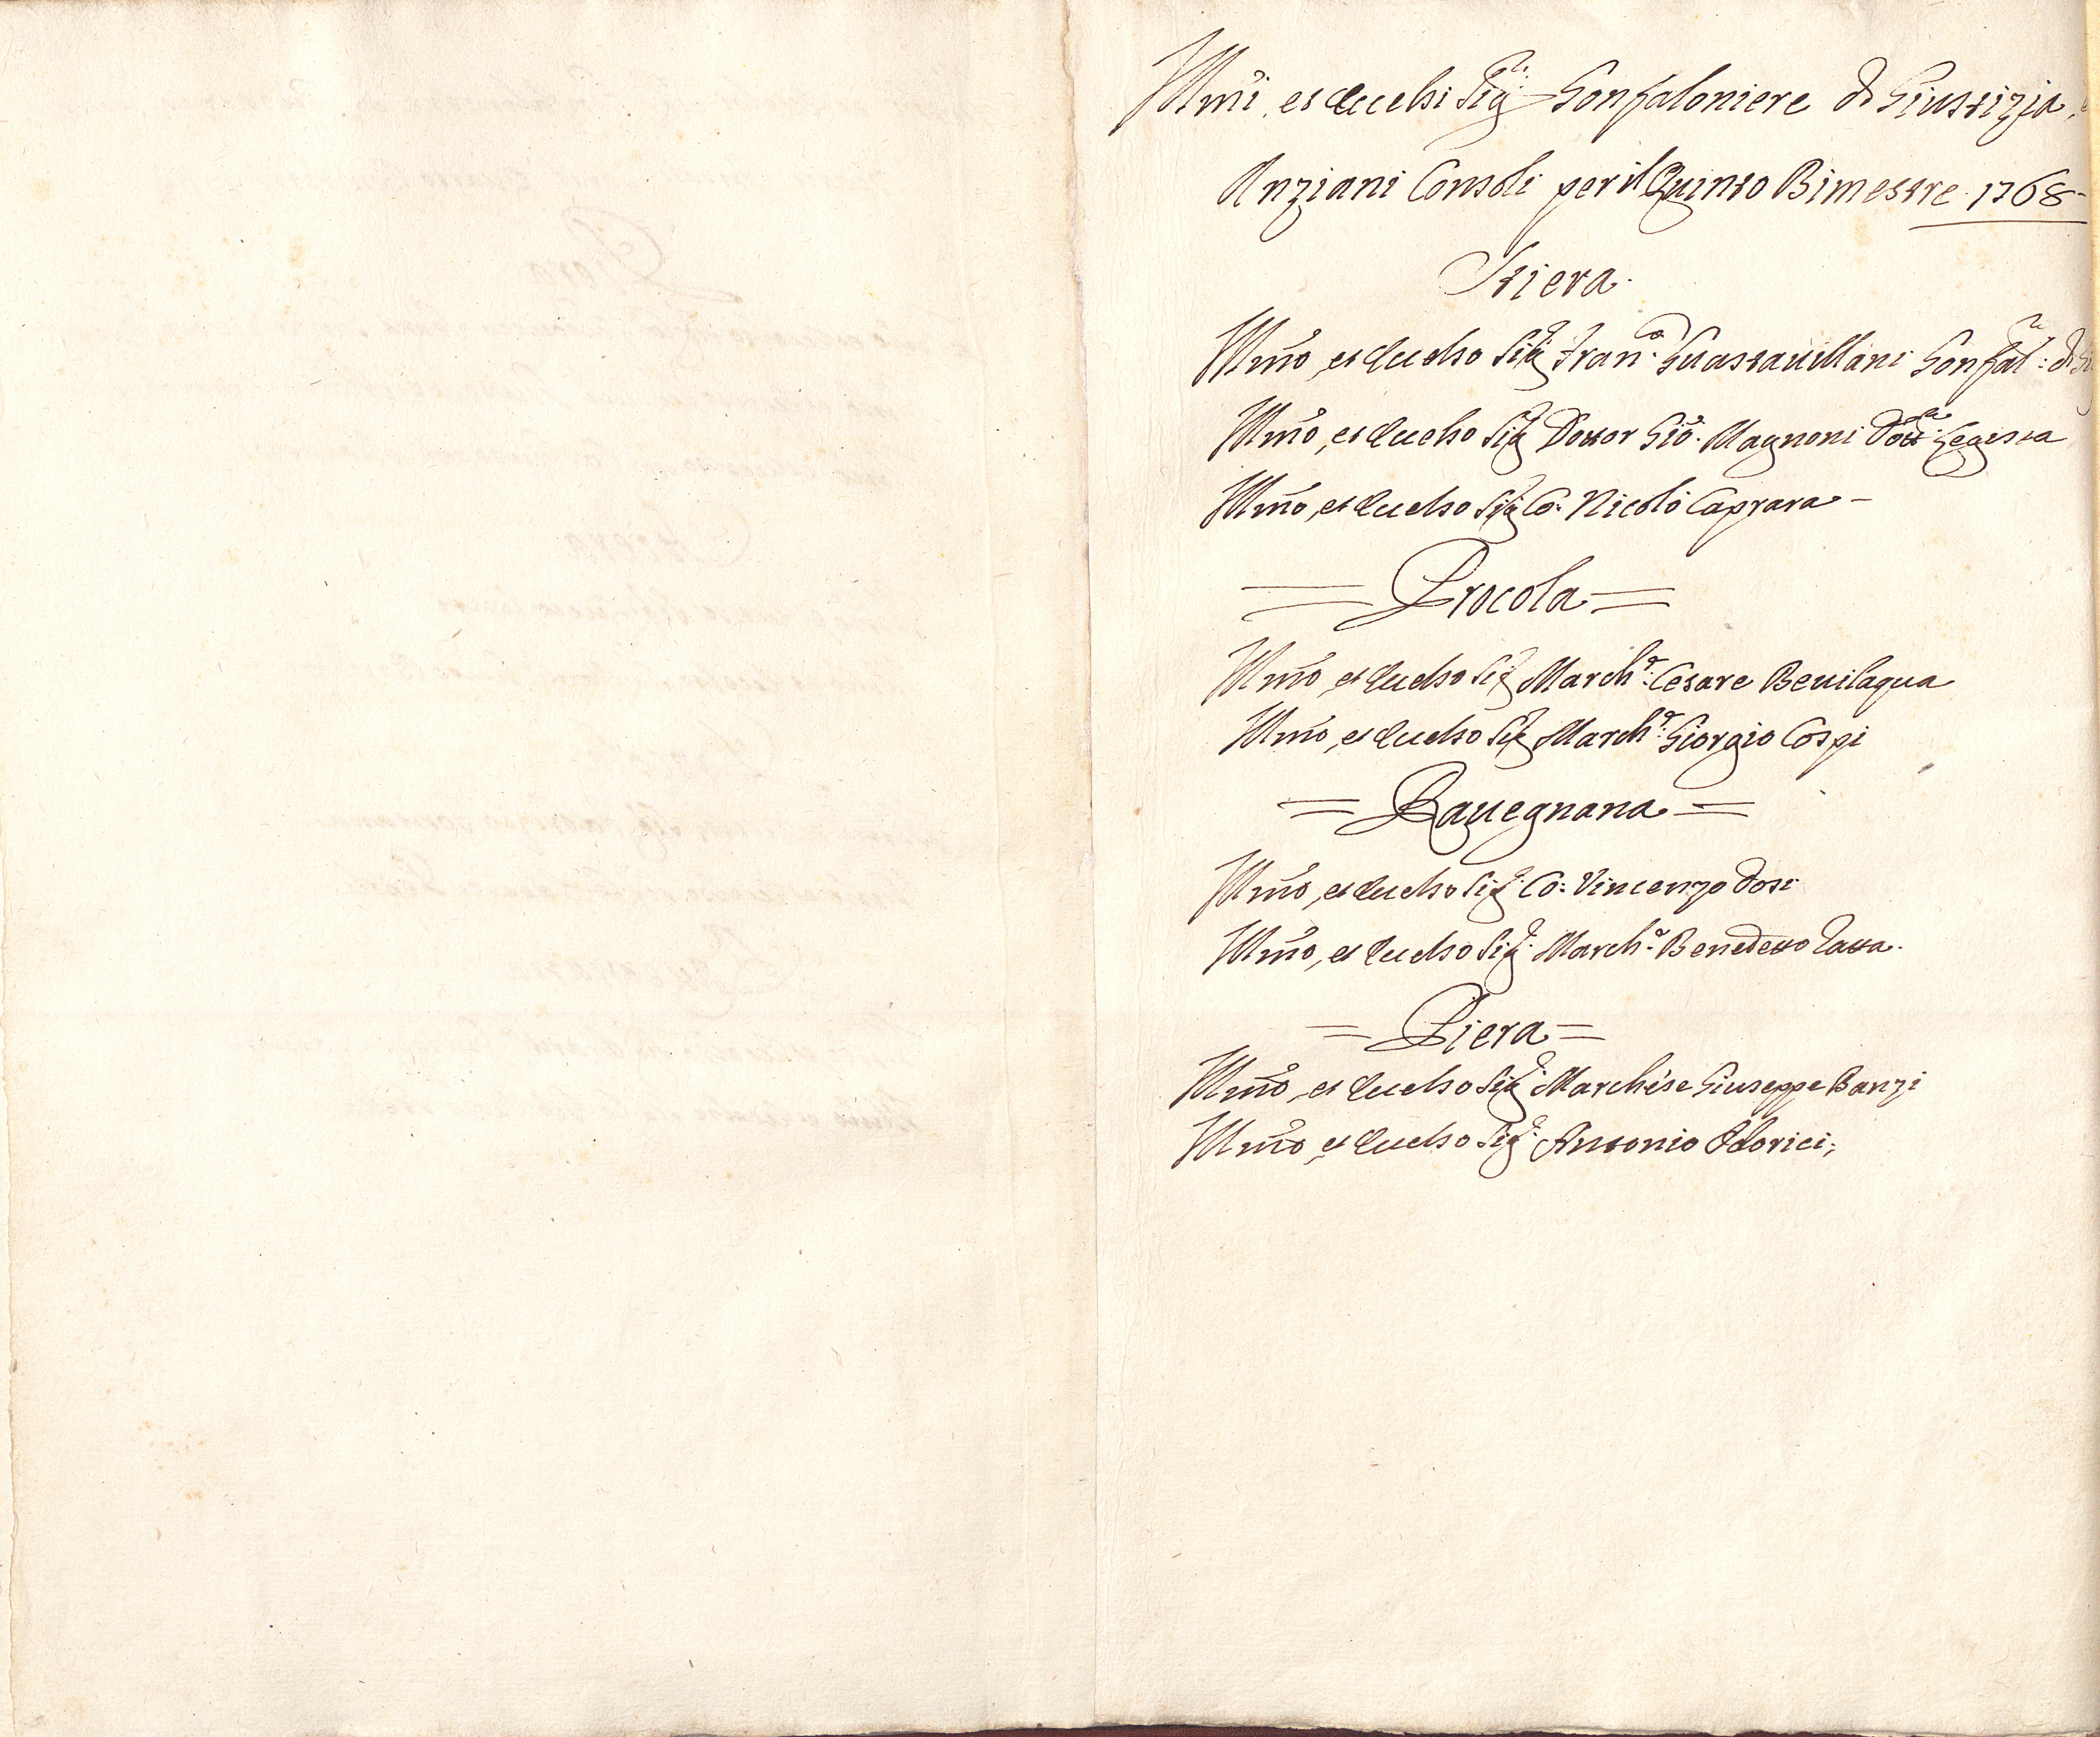 Illmi, et Eccelsi Sigri Gonfaloniere di Giustizia,
Anziani Consoli per il Quinto Bimestre 1768
Stiera
Illmo, et Eccelso Sigr Franco Guastauillani Gonfalre: di
Illmo, et Eccelso Sigr Dottor Gio. Magnoni Dottre Legista
Illmo, et Eccelso Sigr Co: Nicolò Caprara
= Procola =
Illmo, et Eccelso Sigr Marche: Cesare Beuilaqua
Illmo, et Eccelso Sigr Marche: Giorgio Cospi
= Rauegnana =
Illmo, et Eccelso Sigr Co: Vincenzo Dosi
Illmo, et Eccelso Sigr March.e Benedetto Tatta
= Piera =
Illmo, et Eccelso Sigr Marchese Giuseppe Banzi
Illmo, et Eccelso Sigr Antonio Odorici;